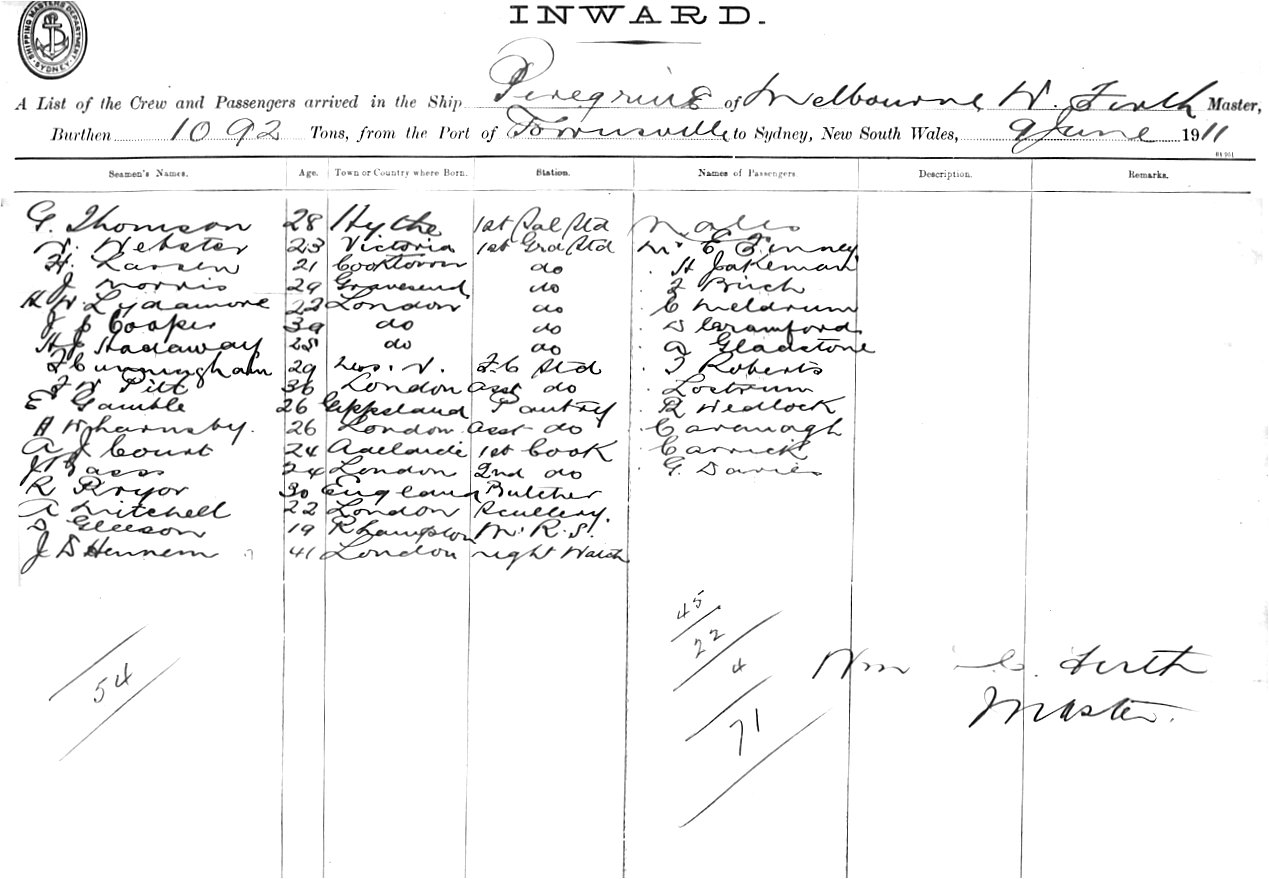 SHIPPING MASTERS DEPARTMENT SYDNEY
INWARD.
A List of the Crew and Passengers arrived in the Ship Peregrine of Melbourne W. Firth Master,
Burthen 1092 Tons, from the Port of Townsville to Sydney, New South Wales, 9 June 1911
Seamen's Names. Age. Town or Country where Born. Station. Names of Passengers. Description. Remarks.
G. Thomson 28 Hythe 1st Sal Std Males
W. Webster 23 Victoria 1st Grd Std Mr E Finney
H. Larsen 21 Cooktown do H Jakeman
J Morris 29 Gravesend do Birch
H W Lydamore 22 London do C Meldrum
J C Cooper 39 do do D Cramford
H J Hadaway 25 do do A Gladstone
F Cunningham 29 F.C Std T Roberts
F W Pitt 36 London asst do Lostrum
E Gamble 26 Gippsland Pantry R Wedlock
H Wharnsby. 26 London asst do Cavanagh
A J Court 24 Adelaide 1st Cook Carrick
Bass 24 London 2nd do G. Davies
R Pryor 30 England Butcher
A Mitchell 22 London Scullery.
D Gleeson 19 Rhampton M. R. S.
J D Hennem 41 London night Watch
45
22
4
71
54
Wm C. Firth
Master.